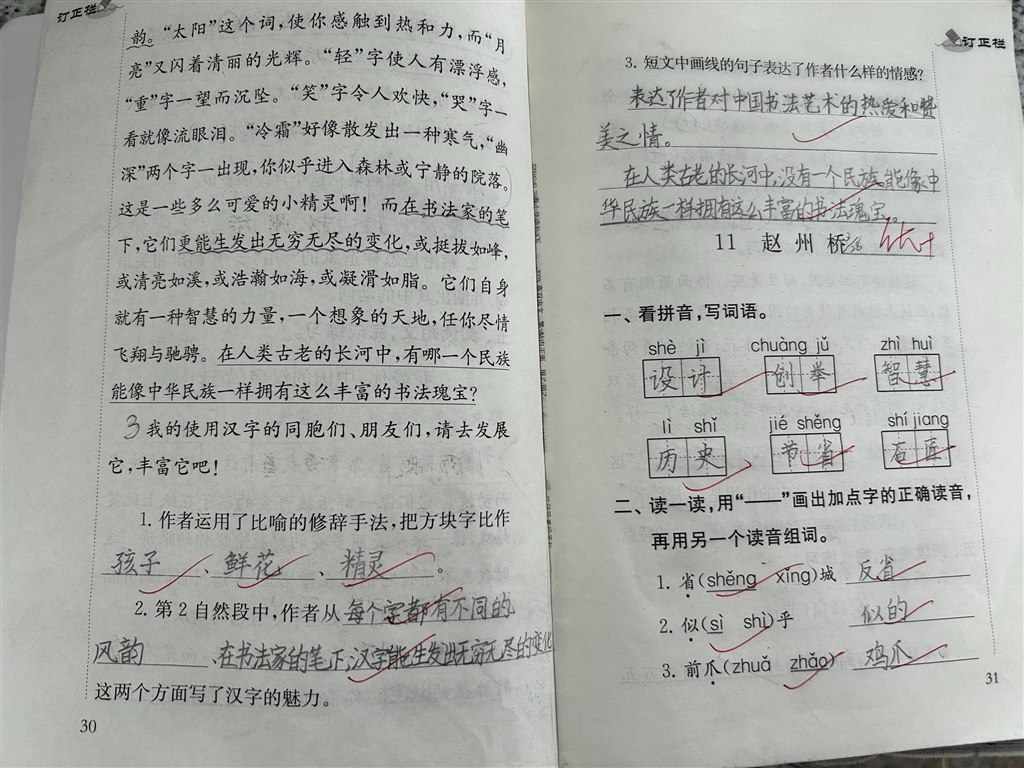 订正栏
韵。“太阳”这个词,使你感触到热和力,而“月
亮”又闪着清丽的光辉。“轻”字使人有漂浮感,
“重”字一望而沉坠。“笑”字令人欢快,“哭”字一
看就像流眼泪。“冷霜”好像散发出一种寒气,“幽
深”两个字一出现,你似乎进入森林或宁静的院落。
这是一些多么可爱的小精灵啊! 而在书法家的笔
下,它们更能生发出无穷无尽的变化,或挺拔如峰,
或清亮如溪,或浩瀚如海,或凝滑如脂。它们自身
就有一种智慧的力量,一个想象的天地,任你尽情
飞翔与驰骋。在人类古老的长河中,有哪一个民族
能像中华民族一样拥有这么丰富的书法瑰宝?
3 我的使用汉字的同胞们、朋友们,请去发展
它,丰富它吧!
1. 作者运用了比喻的修辞手法,把方块字比作
孩子、鲜花、精灵。
2. 第2自然段中,作者从每个字都有不同的
风韵、在书法家的笔下,汉字能生发出无穷无尽的变化
这两个方面写了汉字的魅力。
30
订正栏
3. 短文中画线的句子表达了作者什么样的情感?
表达了作者对中国书法艺术的热爱和赞
美之情。
在人类古老的长河中,没有一个民族能像中
华民族一样拥有这么丰富的书法瑰宝。
11 赵州桥
一、看拼音,写词语。
shè jì chuàng jǔ zhì huì
设计 创举 智慧
lì shǐ jié shěng shí jiang
历史 节省
二、读一读,用“——”画出加点字的正确读音,
再用另一个读音组词。
1. 省(shěng xǐng)城 反省
2. 似(sì shì)乎 似的
3. 前爪(zhuǎ zhǎo) 鸡爪
31